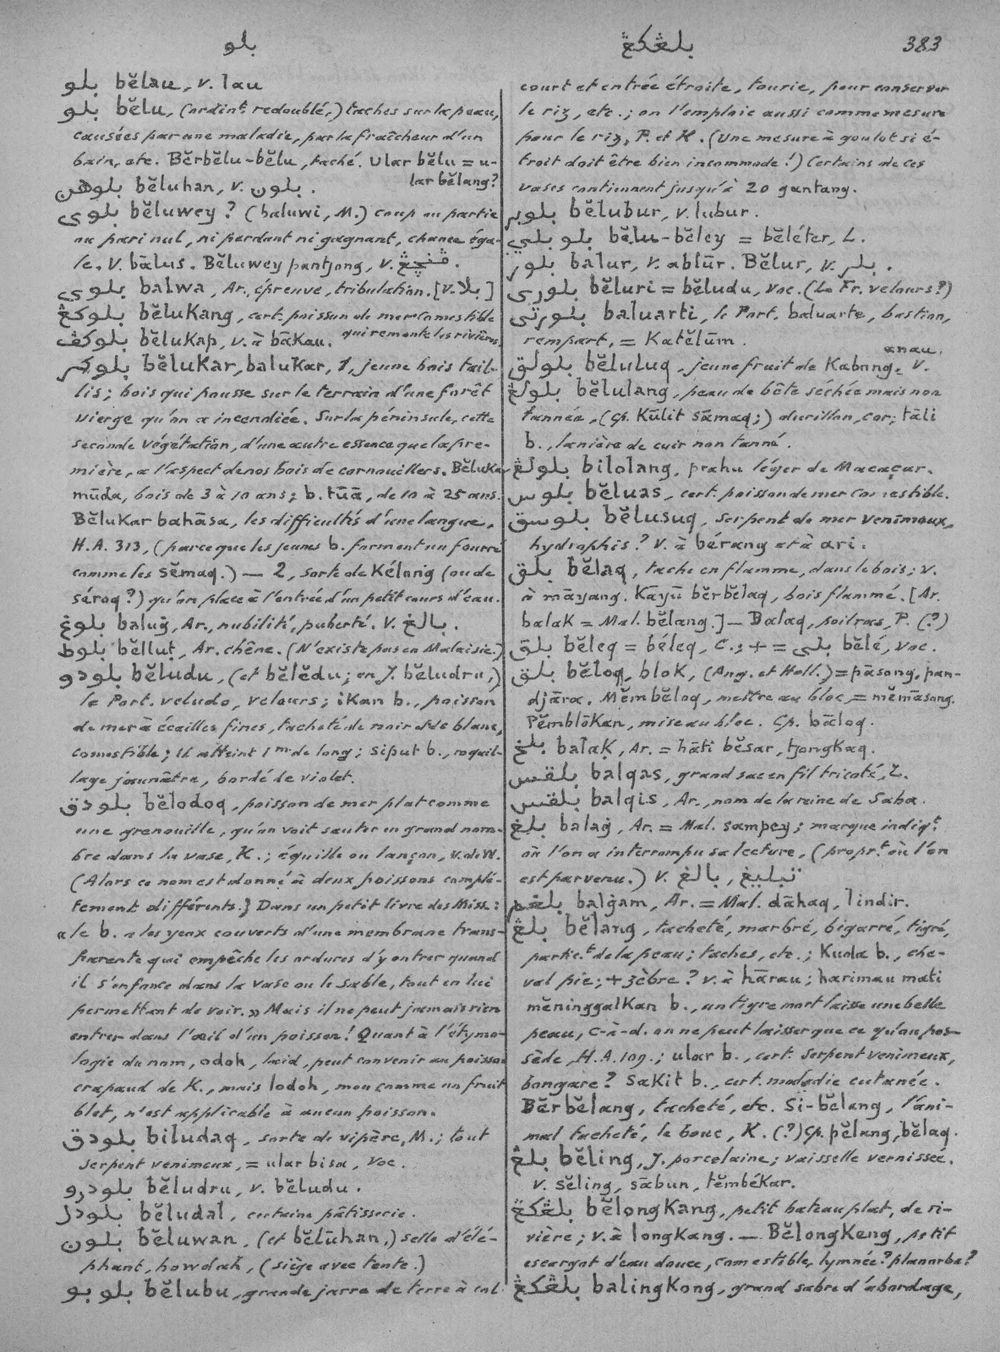 بلو
بلڠكڠ
383
بلو bĕlau, v. lau
بلو bĕlu, (ordint redoublé,) taches sur la peau,
causées par une maladie, par la fraîcheur d'un
bain, etc. Bĕrbĕlu-bĕlu, taché. Ular bĕlu = u-
lar bĕlang?
بلوهن bĕluhan, v. بلون.
بلوي bĕluwey? (baluwi, M.) coup ou partie
ou pari nul, ni perdant ni gagnant, chance éga-
le. v. bālus. Bĕluwey pantjong, v. ڤنچڠ.
بلوي balwa, Ar., épreuve, tribulation. [v. بلا]
بلوكڠ bĕluKang, cert. poisson de mer comestible
qui remonte les rivières.
بلوكڤ bĕluKap, v. à bāKau.
بلوكر bĕluKar, baluKar, 1, jeune bois tail-
lis; bois qui pousse sur le terrain d'une forêt
vierge qu'on a incendiée. Sur la péninsule, cette
seconde végétation, d'une autre essence que la pre-
mière, a l'aspect de nos bois de cornouillers. BĕluKar
mūda, bois de 3 à 10 ans; b. tūā, de 10 à 25 ans.
BĕluKar bahāsa, les difficultés d'une langue,
H.A. 313, (parce que les jeunes b. forment un fourré
comme les sĕmaq.) — 2, sorte de Kélong (ou de
séroq?) qu'on place à l'entrée d'un petit cours d'eau.
بلوغ baluġ, Ar., nubilité, puberté. v. بالغ.
بلوط bĕllut, Ar. chêne. (N'existe pas en Malaisie.)
بلودو bĕludu, (et bĕlĕdu; en J. bĕludru,)
le Port. veludo, velours; iKan b., poisson
de mer à écailles fines, tacheté de noir et de blanc,
comestible; il atteint 1m de long; siput b., coquil-
lage jaunâtre, bordé de violet.
بلودق bĕlodoq, poisson de mer plat comme
une grenouille, qu'on voit sauter en grand nom-
bre dans la vase, K.; équille ou lançon, v. de W.
(Alors ce nom est donné à deux poissons complé-
tement différents.) Dans un petit livre des Miss:
«le b. a les yeux couverts d'une membrane trans-
parente qui empêche les ordures d'y entrer quand
il s'enfonce dans la vase ou le sable, tout en lui
permettant de voir.» Mais il ne peut jamais rien
entrer dans l'œil d'un poisson! Quant à l'étymo-
logie du nom, odoh, laid, peut convenir au poisson
crapaud de K., mais lodoh, mou comme un fruit
blet, n'est applicable à aucun poisson.
بلودق biludaq, sorte de vipère, M.; tout
serpent venimeux, = ular bisa, voc.
بلودرو bĕludru, v. bĕludu.
بلودل bĕludal, certaine pâtisserie.
بلون bĕluwan, (et bĕlūhan,) selle d'élé-
phant, howdah, (siège avec tente.)
بلوبو bĕlubu, grande jarre de terre à col
court et entrée étroite, tourie, pour conserver
le riz, etc.; on l'emploie aussi comme mesure
pour le riz, P. et K. (Une mesure à goulot si é-
troit doit être bien incommode!) Certains de ces
vases contiennent jusqu'à 20 gantang.
بلوبر bĕlubur, v. lubur.
بلو بلي bĕlu-bĕley = bĕléter, L.
بلور balur, v. ablūr. Bĕlur, v. بلر.
بلوري bĕluri = bĕludu, voc. (Le Fr. velours?)
بلورتي baluarti, le Port. baluarte, bastion,
rempart, = Katĕlūm.
بلولق bĕluluq, jeune fruit de Kabong. v.
anau.
بلولڠ bĕlulang, peau de bête séchée mais non
tannée, (Cp. Kūlit sāmaq;) durillon, cor; tāli
b., lanière de cuir non tanné.
بلولڠ bilolang, prahu léger de Macaçar.
بلوس bĕluas, cert. poisson de mer comestible.
بلوسق bĕlusuq, serpent de mer venimeux,
hydrophis? v. à bérang et à ari.
بلق bĕlaq, tache en flamme, dans le bois; v.
à māyang. Kayū bĕrbĕlaq, bois flammé. [Ar.
balaK = Mal. bĕlang.] — Balaq, soitras, P. (?)
بلق bĕleq = béleq, C.; + = بلي bĕlé, voc.
بلق bĕloq, bloK, (Ang. et Holl.) = pāsong, pan-
djāra. Mĕmbĕloq, mettre au bloc, = mĕmāsong.
PĕmblōKan, mise au bloc. Cp. bāloq.
بلغ balaK, Ar. = hāti bĕsar, tjongKaq.
بلقس balqas, grand sac en fil tricoté, L.
بلقيس balqis, Ar., nom de la reine de Saba.
بلغ balaġ, Ar. = Mal. sampey; marque indiqt
où l'on a interrompu sa lecture, (proprt où l'on
est parvenu.) v. تبليغ, بالغ
بلغم balġam, Ar. = Mal. dāhaq, lindir.
بلڠ bĕlang, tacheté, marbré, bigarré, tigré,
partict de la peau; taches, etc.; Kuda b., che-
val pie; + zèbre? v. à hārau; harimau mati
mĕninggalKan b., un tigre mort laisse une belle
peau, c-à-d. on ne peut laisser que ce qu'on pos-
sède, H.A. 109.; ular b., cert. serpent venimeux,
bongare? SaKit b., cert. maladie cutanée.
Bĕrbĕlang, tacheté, etc. Si-bĕlang, l'ani-
mal tacheté, le bouc, K. (?) Cp. pĕlang, bĕlaq.
بلڠ bĕling, J. porcelaine; vaisselle vernissée.
v. sĕling, sābun, tĕmbéKar.
بلڠكڠ bĕlongKang, petit bateau plat, de ri-
vière; v. à longKang. — BĕlongKeng, petit
escargot d'eau douce, comestible, lymnée? planorbe?
بلڠكڠ balingKong, grand sabre d'abordage,